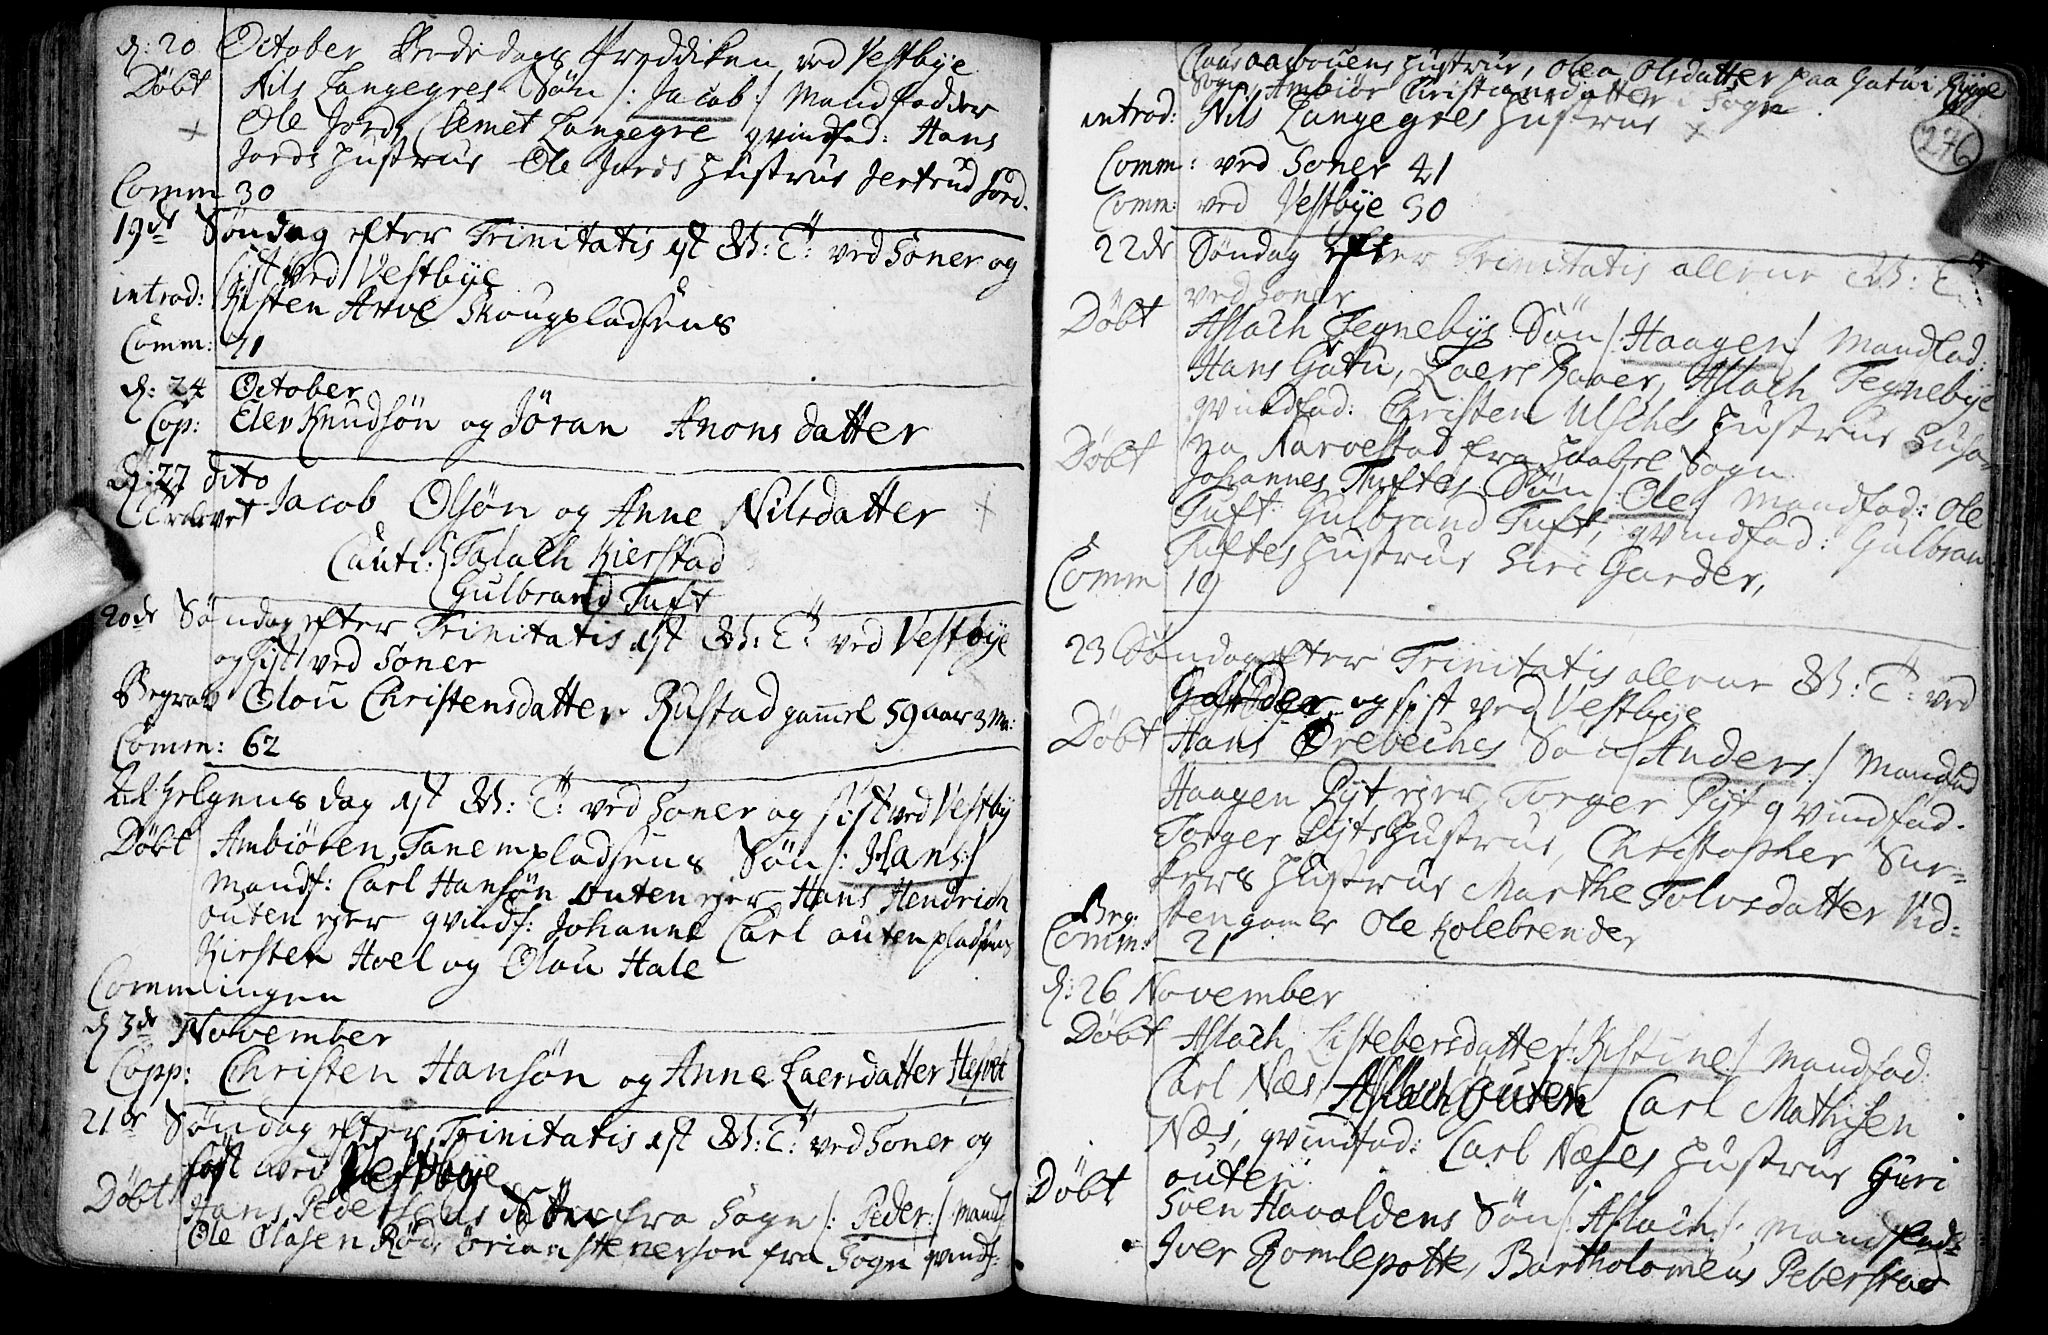 d: 20 October Bededags Preddiken ved Vestbÿe
Döbt Nils Langegres Sön /: Jacob :/ Mandfadder
Ole Jords Clemet Langegre qvindfad: Hans
Jords Hustrue Ole Jords Hustrue Jertrud Jord.
Comm 30
19de Söndag efter Trinitatis ist ved Soner og
sist ved Vestbÿe
introd: Kisten Arvve Skougpladsens
Comm: 71
d: 24 October
Cop: Elev Knudsön og Jöran Anons datter
d: 27 dito
Trolovet Jacob Olsön og Anne Nilsdatter
Cauti: Talach Kierstad
Gulbrand Tuft
20de Söndag efter Trinitatis ist ved Vestbÿe
og sist ved Soner
Begrav Olou Christensdatter Rustad gamel 59 aar 3 M:
Comm: 62
All: Helgens dag ist ved Soner og sist ved Vestbÿ
Döbt Ambiören Tanempladsens Sön /: Hans :/
Mandf: Carl Hansön outen ejer Hans Hendrich
outen ejer qvindf: Johanne Carl outenpladsens
Kirsten Hoel og Olou Hale
Comm ingen
d 3de November
Copp: Christen Hansön og Anne Laersdatter Hesvet
21de Söndag efter Trinitatis ist ved Soner og
sist ved Vestbÿe
Döbt Hans Pedersens Sön fra Sogn /: Peder :/ Mandf
Ole Olasen Röd, Stenerson fra Sogn qvindf:
Claus Hustrue, Olea Olsdatter paa Gatu i Rÿgge
Sogn, Ambiör Christiansdatter i Sogn
276
introd: Nils Langegres Hustrue
Comm: ved Soner 41
Comm: ved Vestbÿe 30
22de Söndag efter Trinitatis allene
ved Soner
Döbt Aslach Tegnebÿs Sön /: Haagen :/ Mandfad:
Hans Gatu, Laers Raaer, Aslach Tegnebÿe
qvindfad: Christen Ulsches Hustrue Susan
na Narvestad fra Haabøl Sogn
Döbt Johannes Tuftes Sön /: Ole :/ Mandfad: Ole
Tuft Gulbrand Tuft, qvindfad: Gulbran
Tuftes Hustrue Siri Garder,
Comm 19
23 Söndag efter Trinitatis allene ved
Garder og sist ved Vestbÿe
Döbt Hans Örebechs Sön /: Anders :/ Mandfad
Haagen Pÿt ejer Torger Pÿt qvindfad.
Torger Pÿts Hustrue, Christopher Sur=
Hustrue Marthe Tolvsdatter Vid=
sten
Beg: gamle Ole Kolebrender
Comm: 21
d: 26 November
Döbt Aslach Listebersdatter /: Kistine :/ Mandfad.
Carl Næs, Aslach Outen Carl Mathisen
Næs, qvindfad: Carl Næses Hustrue Guri
outen
Döbt Sven Havoldens Sön /: Aslach :/ Mandfad:
Iver Romlepotte, Bartholomeus Peberstad